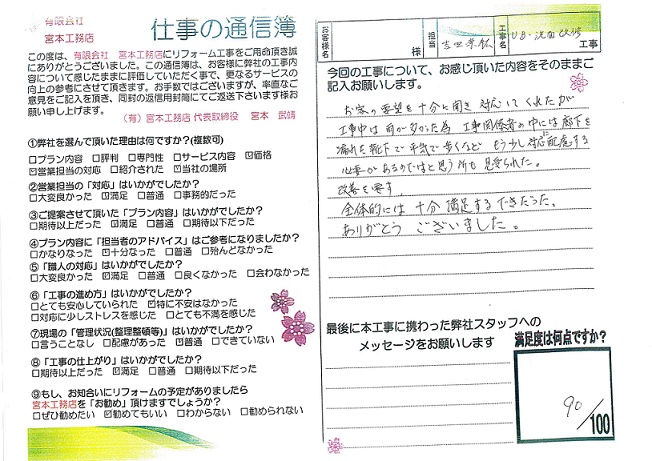 有限会社
宮本工務店
仕事の通信簿
この度は、有限会社 宮本工務店にリフォーム工事をご用命頂き誠
にありがとうございました。この通信簿は、お客様に弊社の工事内
容について感じたままに評価していただく事で、更なるサービスの
向上の参考にさせて頂きます。お手数ではございますが、率直なご
意見をご記入を頂き、同封の返信用封筒にてご返送下さいます様お
願い申し上げます。
(有)宮本工務店 代表取締役 宮本 武靖
①弊社を選んで頂いた理由は何ですか?(複数可)
□プラン内容 □評判 □専門性 □サービス内容 ☑価格
☑営業担当の対応 □紹介された ☑当社の場所
②営業担当の「対応」はいかがでしたか?
□大変良かった ☑満足 □普通 □事務的だった
③ご提案させて頂いた「プラン内容」はいかがでしたか?
□期待以上だった ☑満足 □普通 □期待以下だった
④プラン内容に「担当者のアドバイス」はご参考になりましたか?
□かなりなった ☑十分なった □普通 □殆んどなかった
⑤「職人の対応」はいかがでしたか?
□大変良かった ☑満足 □普通 □良くなかった □会わなかった
⑥「工事の進め方」はいかがでしたか?
□とても安心していられた ☑特に不安はなかった
□対応に少しストレスを感じた □とても不満を感じた
⑦現場の「管理状況(整理整頓等)」はいかがでしたか?
□言うことなし □配慮があった ☑普通 □できていない
⑧「工事の仕上がり」はいかがでしたか?
□期待以上だった ☑満足 □普通 □期待以下だった
⑨もし、お知合いにリフォームの予定がありましたら
宮本工務店を「お勧め」頂けますでしょうか?
□ぜひ勧めたい ☑勧めてもいい □わからない □勧められない
お客様名
様
担当
工事名
工事
今回の工事について、お感じ頂いた内容をそのままご
記入お願いします。
お客の要望を十分に聞き対応してくれたが
工事中は雨が多かった為 工事関係者の中には廊下を
濡れた靴下で平気で歩くなど もう少し対応配慮する
必要があるのではと思う所も見受られた。
改善を要す。
全体的には十分満足するできだった。
ありがとう ございました。
最後に本工事に携わった弊社スタッフへの
メッセージをお願いします
満足度は何点ですか?
90
/100